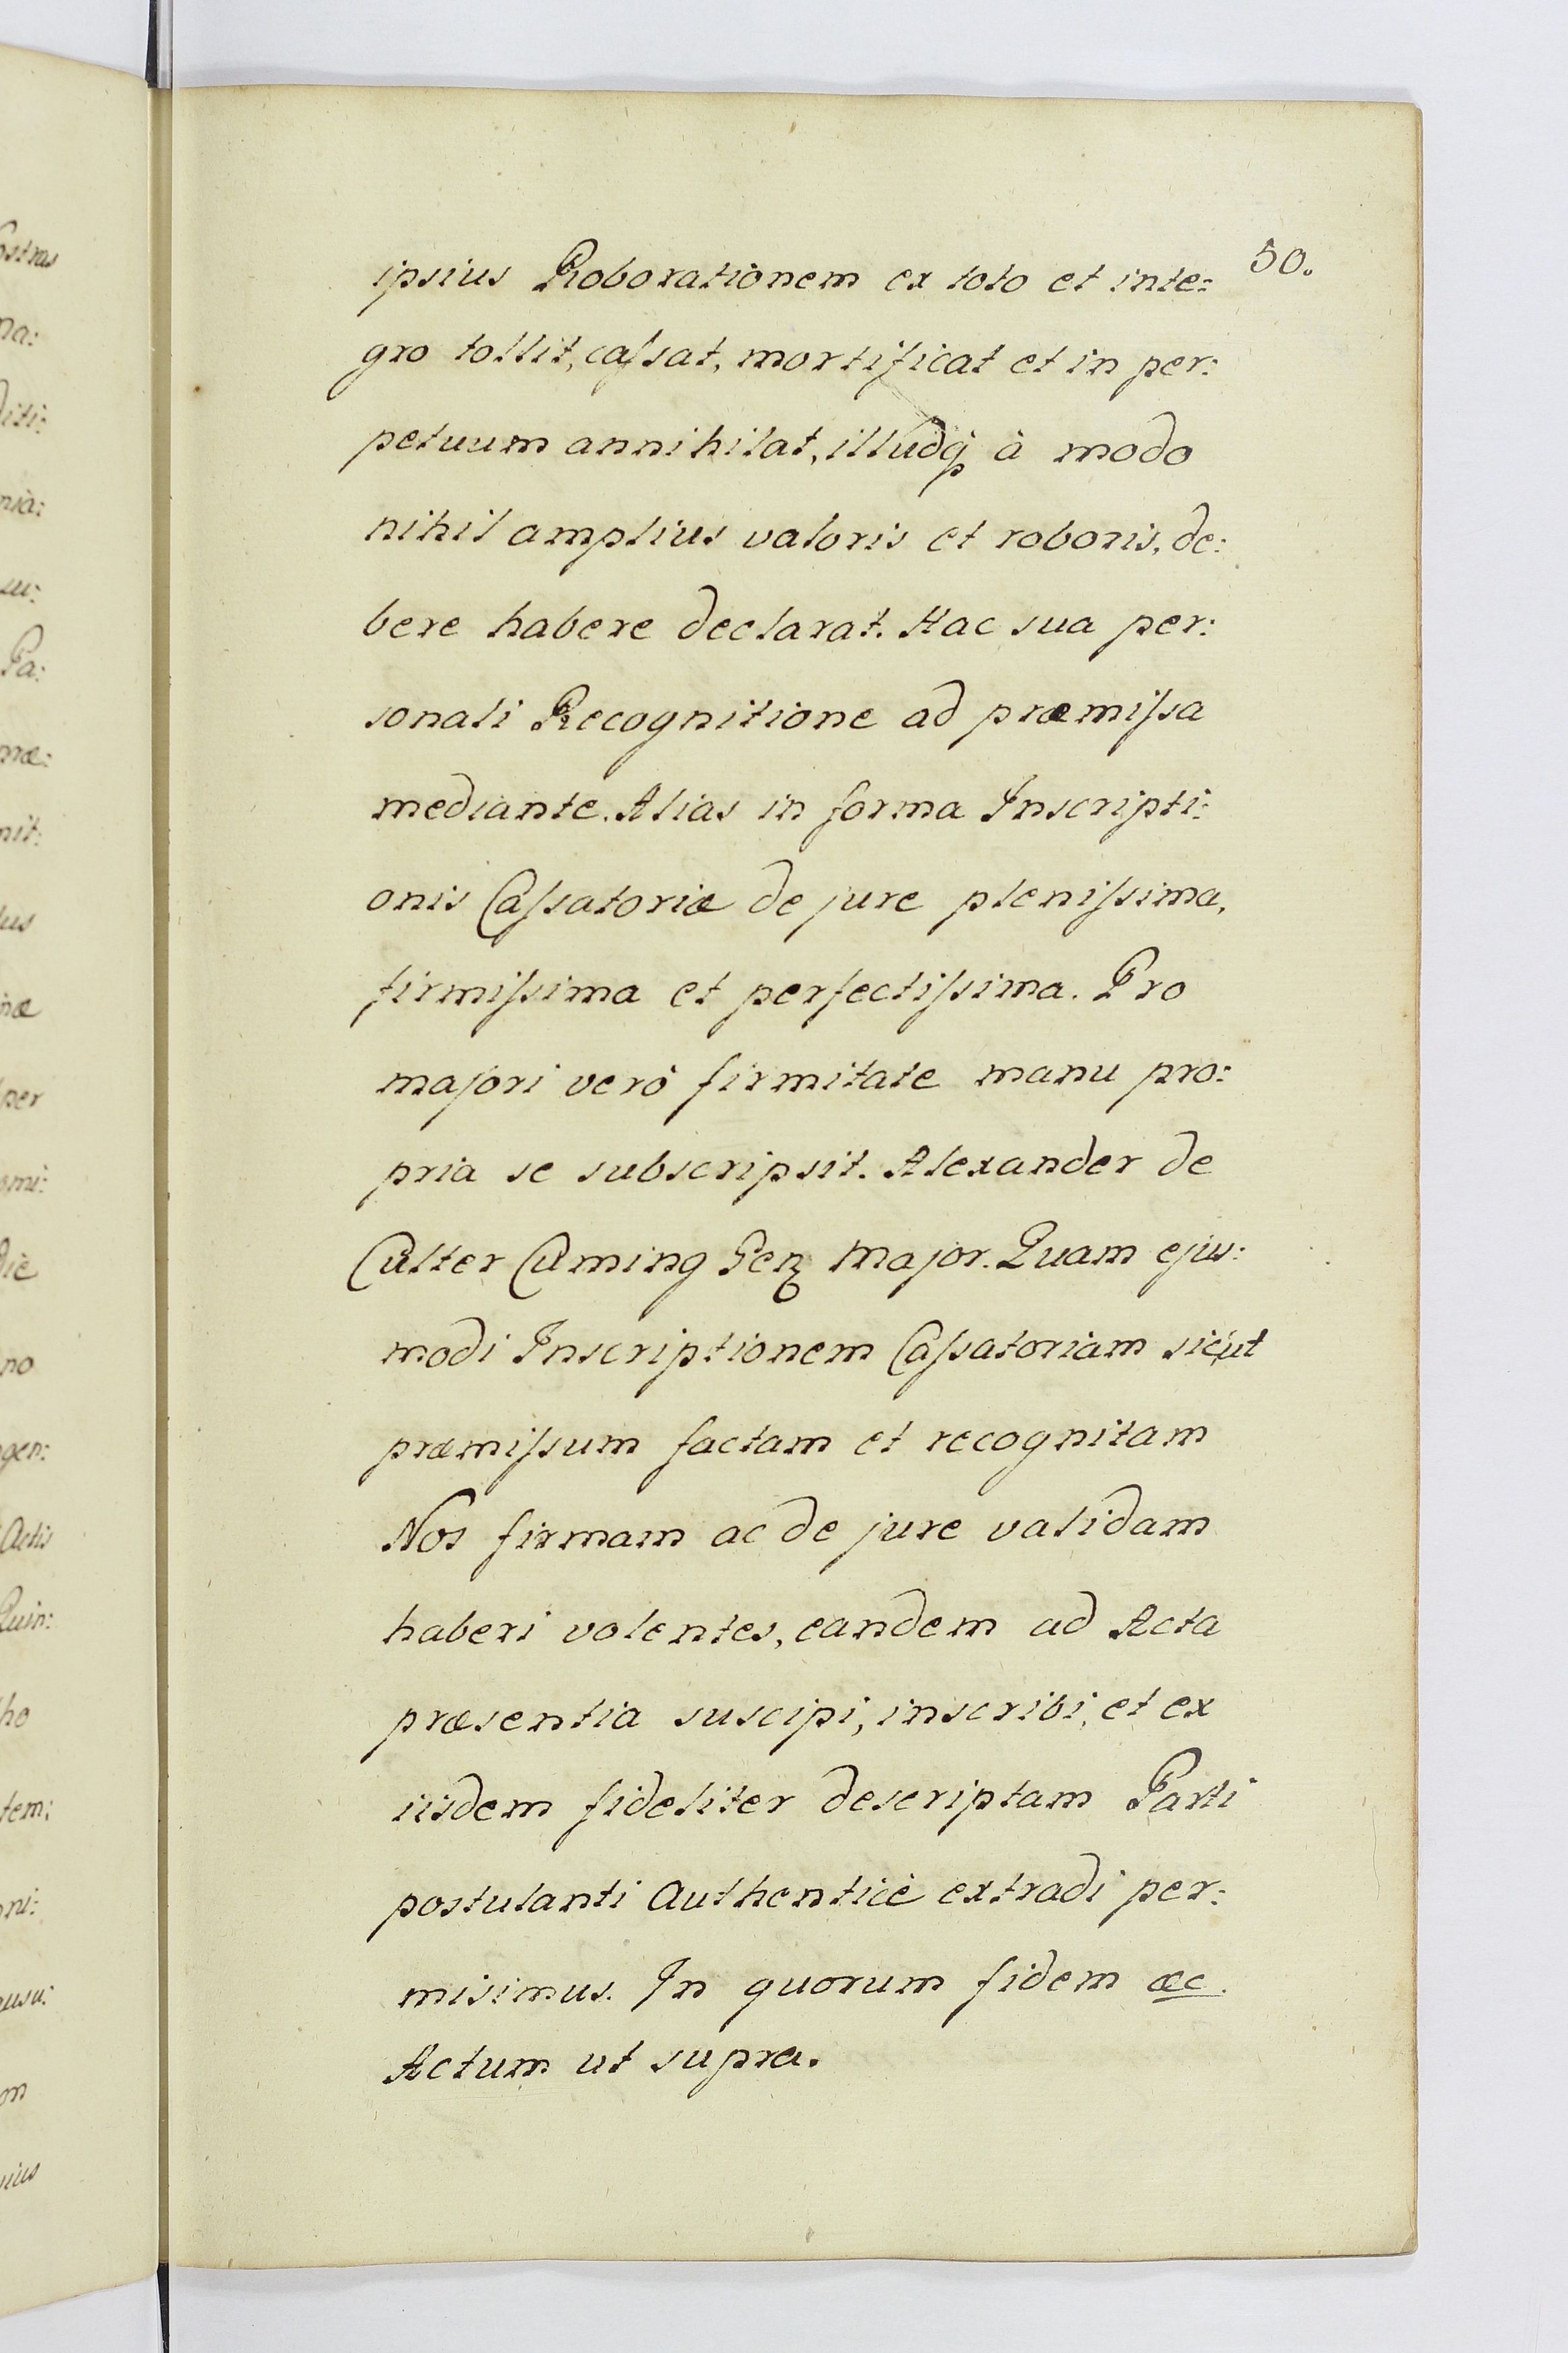 50.
ipsius Roborationem ex toto et inte:
gro tollit, caſsat, mortificat et in per:
petuum annihilat, illudq̃ à modo
nihil amplius valoris et roboris, de:
bere habere declarat. Hac sua per:
sonali Recognitione ad præmiſsa
mediante. Alias in forma Inscripti:
onis Caſsatoriæ de jure pleniſsima,
firmiſsima et perfectiſsima. Pro
majori verò firmitate manu pro:
pria se subscripsit. Alexander de
Culter Cuming Gen Major. Quam ejus:
modi Inscriptionem Caſsatoriam sicut
præmiſsum factam et recognitam
Nos firmam ac de jure validam
haberi volentes, eandem ad Acta
præsentia suscipi, inscribi, et ex
iisdem fideliter descriptam Parti
postulanti Authenticè extradi per:
misimus. In quorum fidem æc.
Actum ut supra.